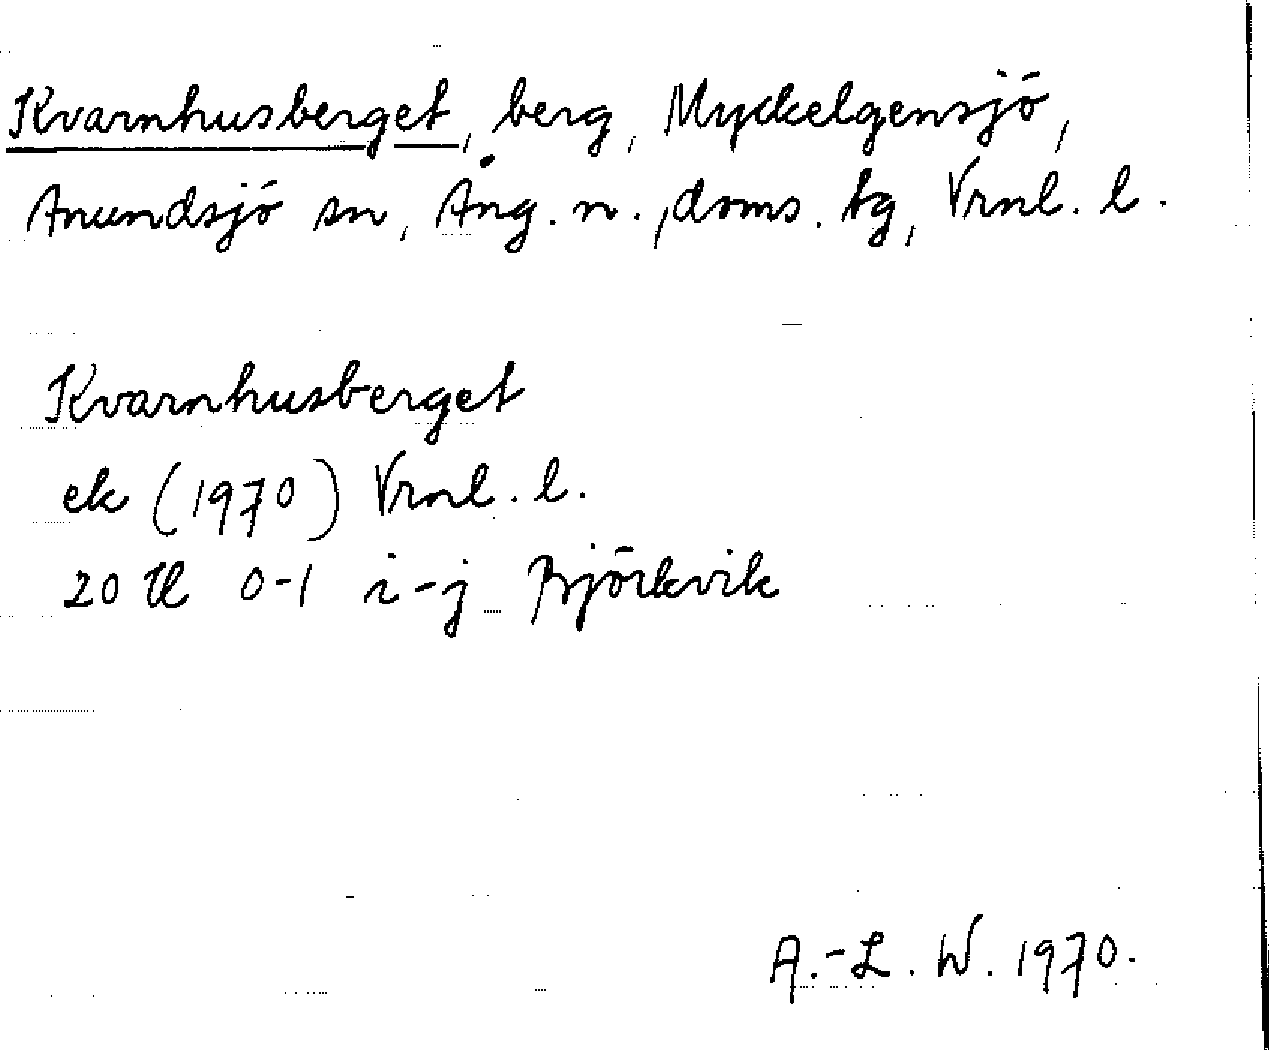 Kvarnhusberget, berg, Myckelgensjö,
Anundsjö sn, Ång. n., doms. tg, Vrnl. l.
Kvarnhusberget
ek (1970) Vrnl. l.
20 H 0-1 i-j Björkvik
A.-L. W. 1970.